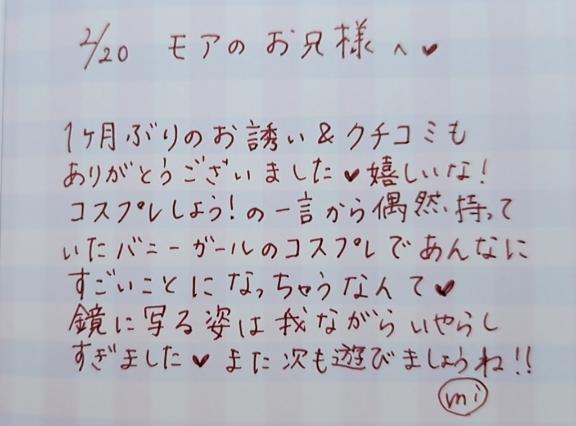 2/20 モアのお兄様へ♥
1ヶ月ぶりのお誘い&クチコミも
ありがとうございました♥嬉しいな!
コスプレしよう!の一言から偶然、持って
いたバニーガールのコスプレであんなに
すごいことになっちゃうなんて♥
鏡に写る姿は我ながらいやらし
すぎました♥また次も遊びましょうね!!
mi